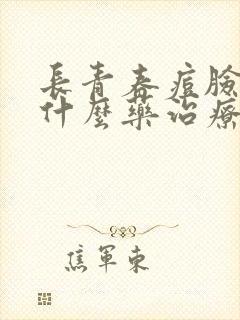 長青春痘臉
什麼藥治療
焦軍東